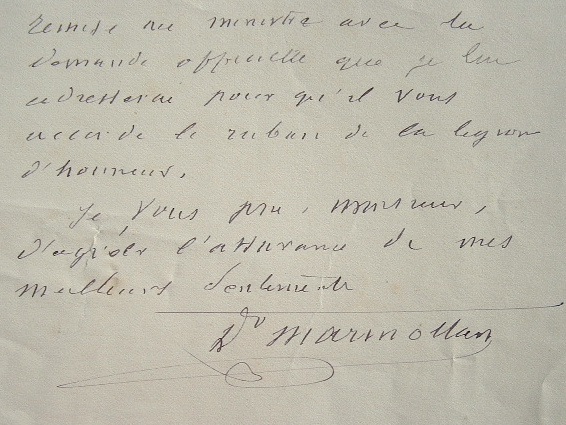 remise au ministre avec la
demande officielle que je lui
adresserai pour qu'il vous
accorde le ruban de la legion
d'honneur.
Je vous prie, monsieur,
d'agréer l'assurance de mes
meilleurs sentiments
Dr Marmottan